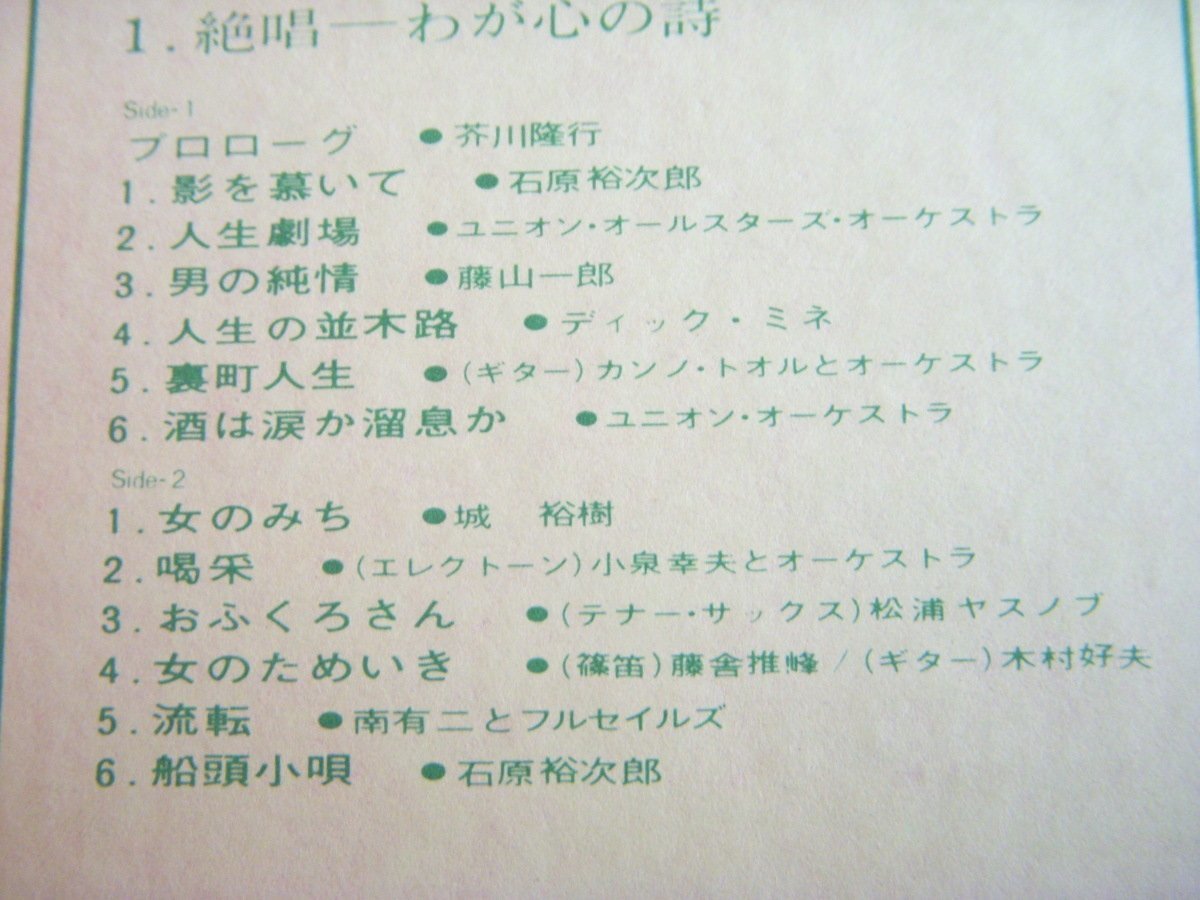 1.絶唱—わが心の詩
Side-1
プロローグ ●芥川隆行
1.影を慕いて ●石原裕次郎
2.人生劇場 ●ユニオン・オールスターズ・オーケストラ
3.男の純情 ●藤山一郎
4.人生の並木路 ●ディック・ミネ
5.裏町人生 ●(ギター)カンノ・トオルとオーケストラ
6.酒は涙か溜息か ●ユニオン・オーケストラ
Side-2
1.女のみち ●城 裕樹
2.喝采 ●(エレクトーン)小泉幸夫とオーケストラ
3.おふくろさん ●(テナー・サックス)松浦ヤスノブ
4.女のためいき ●(篠笛)藤舎推峰/(ギター)木村好夫
5.流転 ●南有二とフルセイルズ
6.船頭小唄 ●石原裕次郎